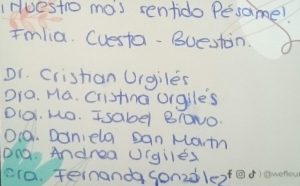 ¡Nuestro más sentido Pésame!
Fmlia. Cuesta - Buestán.
Dr. Cristian Urgilés
Dra. Ma. Cristina Urgilés
Dra. Ma. Isabel Bravo.
Dra. Daniela San Martn
Dra. Andrea Urgilés
Dra. Fernanda González
@wefleur